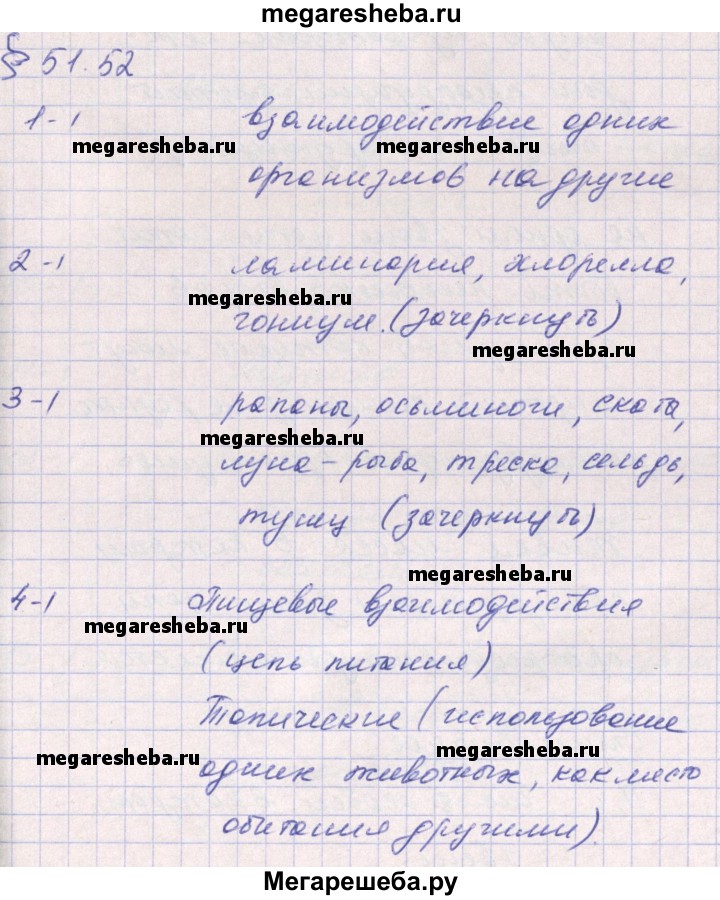 megaresheba.ru
§ 51.52
1-1 взаимодействие одних
megaresheba.ru megaresheba.ru
организмов на другие
2-1 ламинария, хлорелла,
megaresheba.ru
гониум. (зачеркнуть)
megaresheba.ru
3-1 рапаны, осьминоги, ската,
megaresheba.ru
луна-рыба, треска, сельдь,
тунец (зачеркнуть)
megaresheba.ru
4-1 Пищевые взаимодействия
megaresheba.ru
(цепь питания)
Топические (использование
megaresheba.ru megaresheba.ru
одних животных, как место
обитания другими).
Мегарешеба.ру